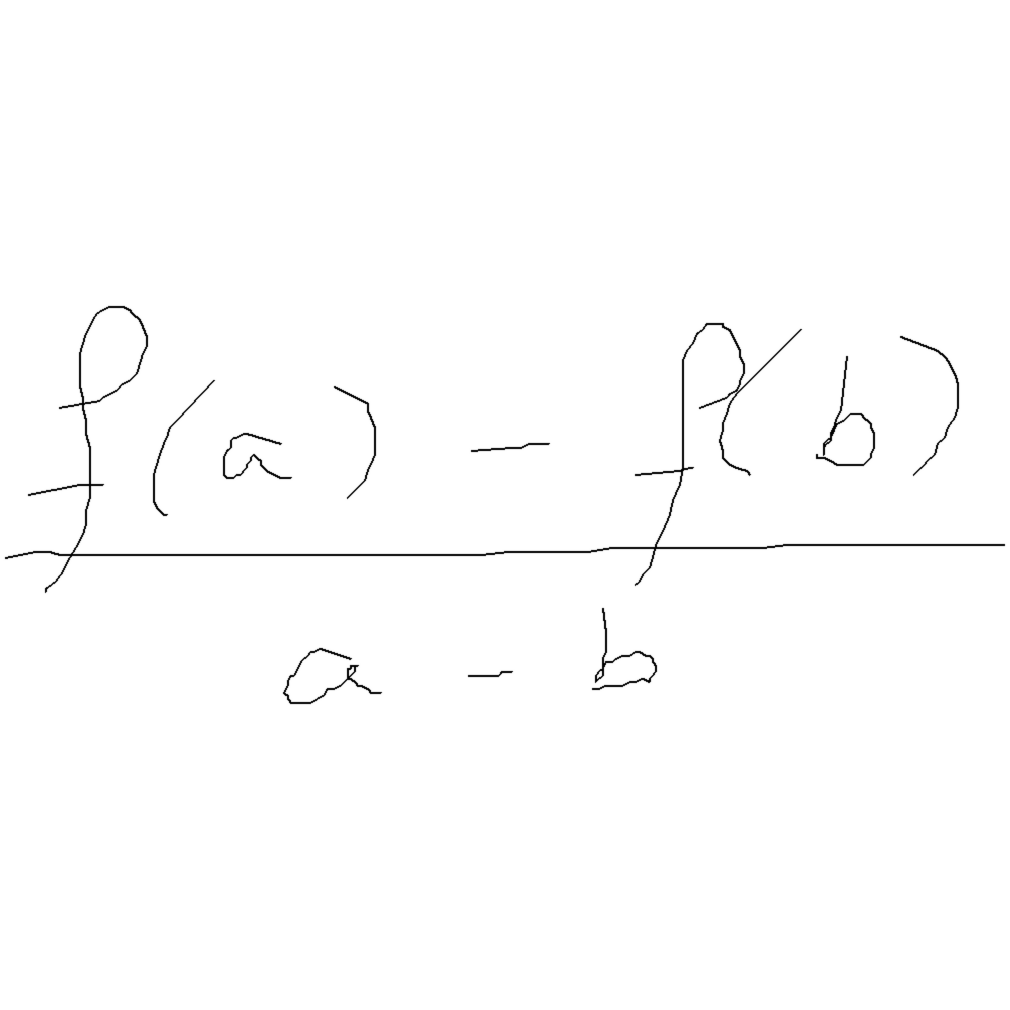 f(a) - f(b)
a - b